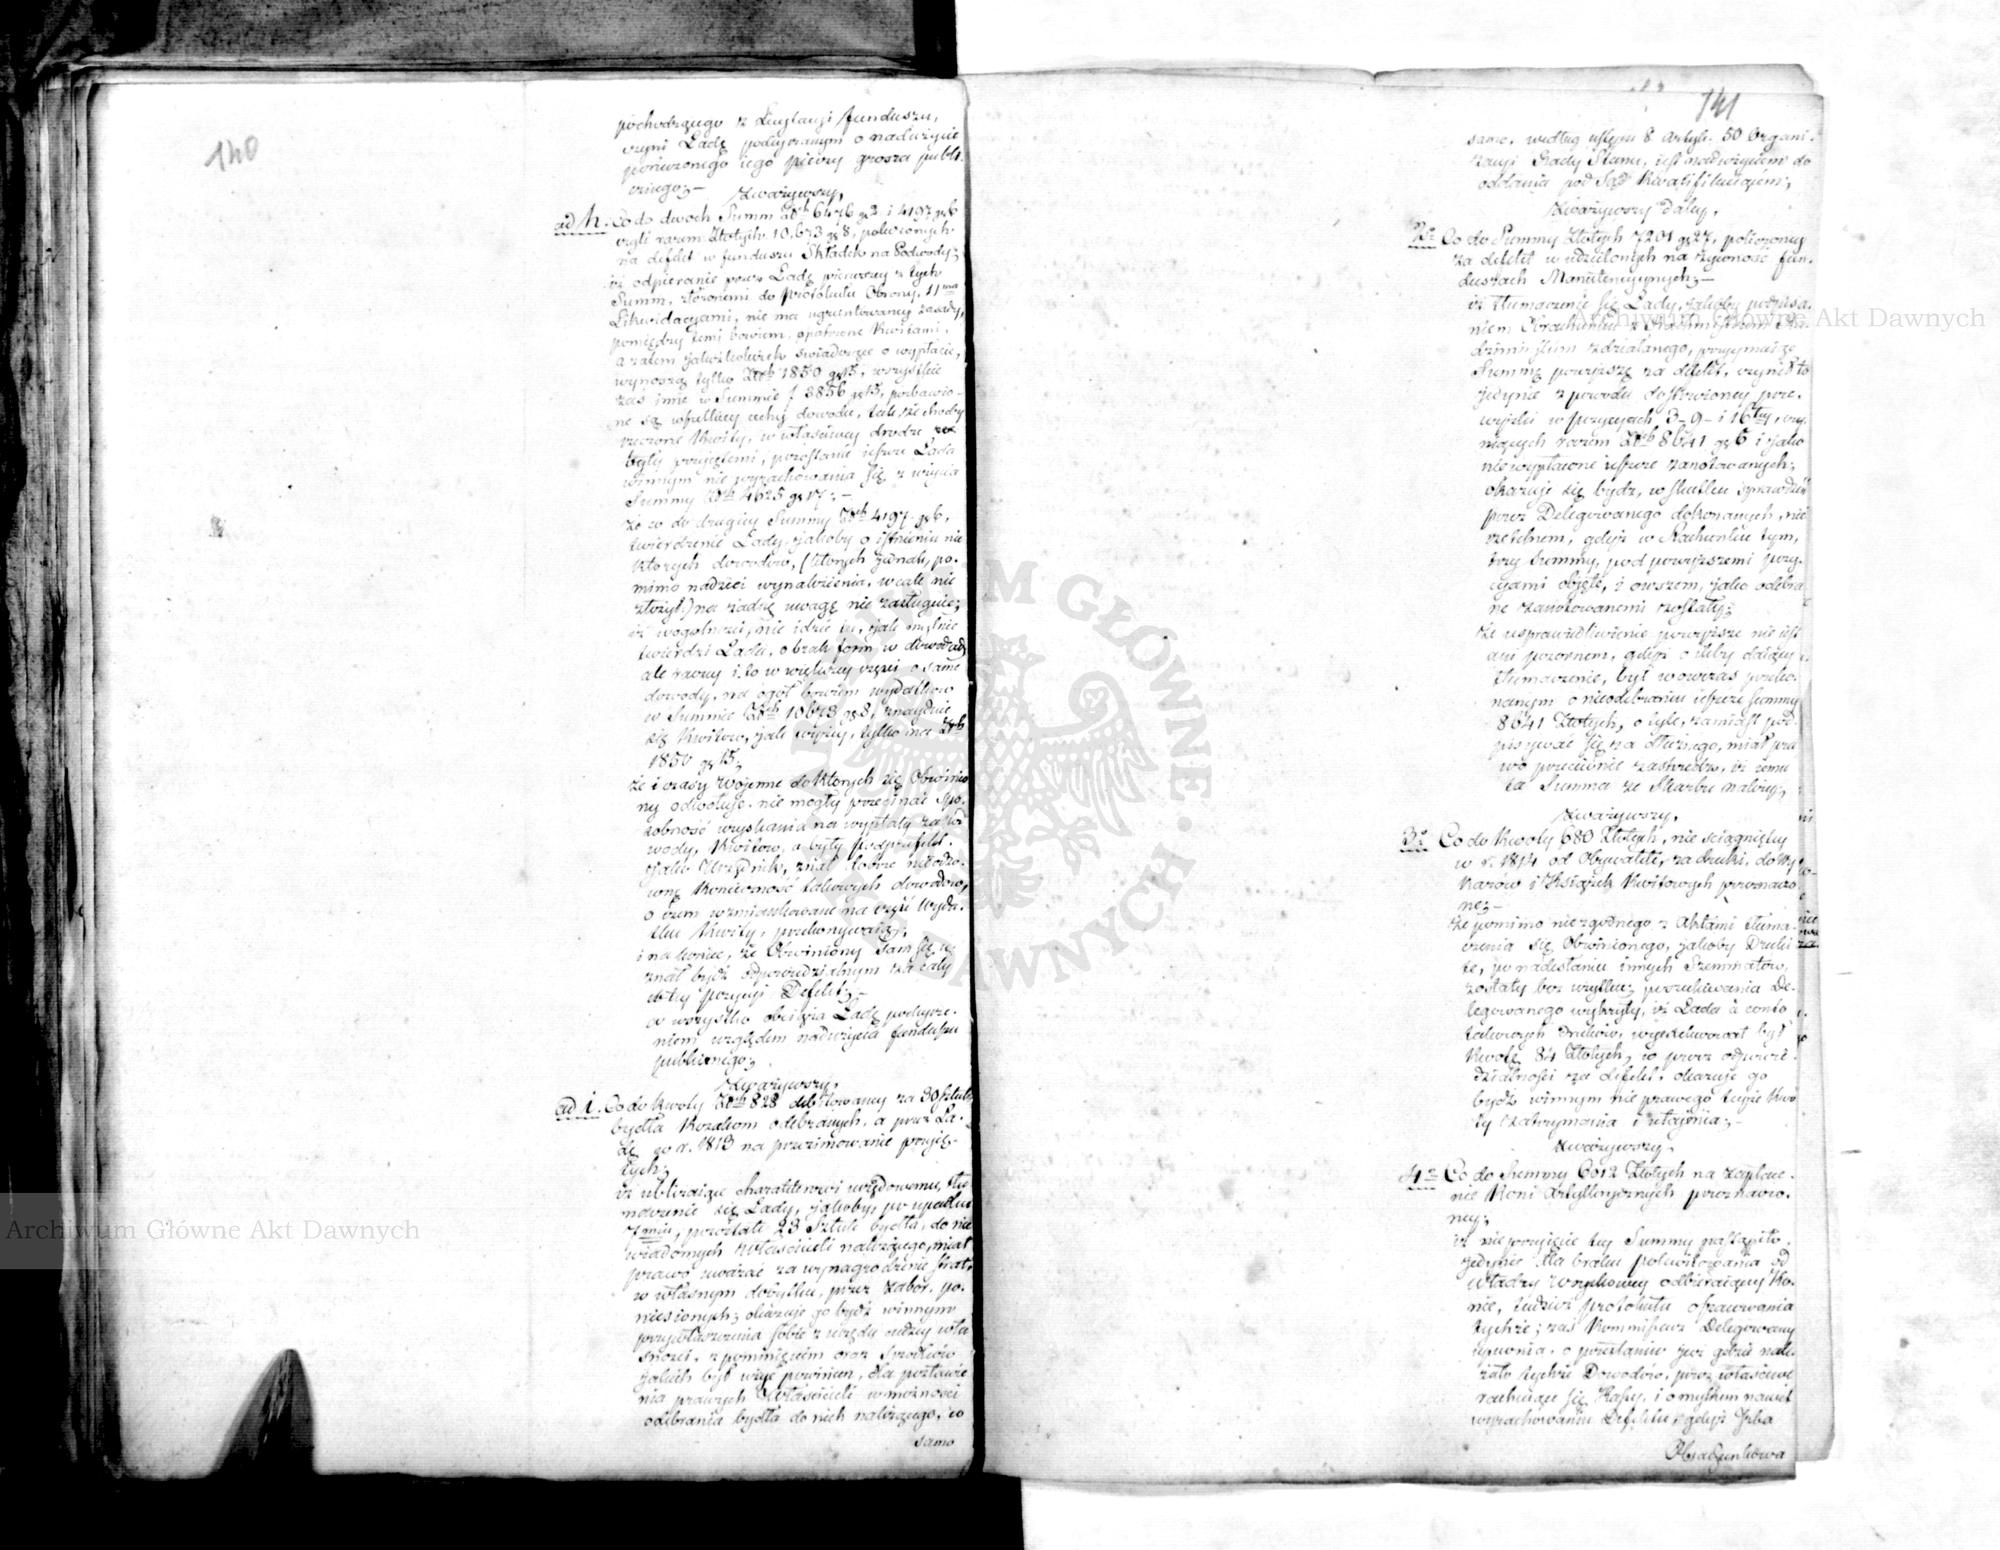 140
pochodzącego z Licytacyi funduszu,
czyni Ladę podeyrzanym o nadużycie
powierzonego iego pieczy grosza publi-
cznego; —
Zważywszy,
ad h. Co do dwóch Summ Złch 6476 g 2 i 4197 g 6
czyli razem Złotych 10,673 g 8, policzonych
na defekt w funduszu Składek na Podwody;
iż odpieranie przez Ladę pierwszey z tych
Summ, złożonemi do Protokułu Obrony, 11ma
Likwidacyami, nie ma ugruntowaney zasady,
pomiędzy temi bowiem, opatrzone Kwitami,
a zatem iakożkolwiek świadczące o wypłacie,
wynoszą tylko Złch 1850 g 15, wszystkie
zaś inne w Summie f 3856 g 15, pozbawio-
ne są wszelkiey cechy dowodu, tak, że choćby
rzeczone Kwity, w właściwey drodze
były przyjętemi, pozostanie jeszcze Lada
winnym nie wyrachowania się z użycia
Summy Złch 4625 g 17; —
że co do drugiey Summy Złch 4197 g 6,
twierdzenie Lady, jakoby o istnieniu nie
których dowodów, (których jednak, po-
mimo nadziei wynalezienia, wcale nie
złożył) na żadną uwagę nie zasługuie;
iż wogólności, nie idzie tu, jak mylnie
twierdzi Lada, o brak form w dowodach,
ale raczey i to w większey części o same
dowody, na ogół bowiem wydatków
w Summie Złch 10673 g 8, znayduie
się Kwitów, jak wyżey, tylko na Złch
1850 g 15;
że i czasy Wojenne do których się Obwinio
ny odwołuje, nie mogły przecinać spo-
sobność wyskania na wypłaty za pod
wody, Kwitów, a były Podprefekt,
jako Urzędnik, znał dobrze nieodzo-
wną Konieczność takowych dowodów,
o czem wzmiankowane na część wyda-
tku Kwity, przekonywaią;
i nakoniec, że Obwiniony sam się u-
znał bydź odpowiedzialnym za cały
w tey pozycyi Defekt; —
co wszystko obciąża Ladę podeyrze-
niem względem nadużycia funduszu
publicznego;
Zważywszy,
ad i. Co do Kwoty Złch 828 defektowaney za 30 sztuk
bydła Kozakom odebranych, a przez La-
dę w r. 1813 na przezimowanie przyję-
tych;
iż ubliżaiące charakterowi urzędowemu, tłu-
maczenie się Lady, jakoby, po upadku
7miu, pozostałe 23 Sztuk bydła, do nie
wiadomych właścicieli należącego, miał
prawo uważać za wynagrodzenie strat,
w własnym dobytku, przez zabór, po-
niesionych; okazuje go bydź winnym
przywłaszczenia sobie z urzędu cudzey wła
sności, z pominięciem oraz środków
jakich był użyć powinien, dla postawie
nia prawych Właścicieli w możności
odebrania bydła do nich należącego, co
samo
141
samo, według ustępu 8 Artyk. 50 Organi-
zacyi Rady Stanu, iest nadużyciem do
oddania pod Sąd kwalifikuiącem;
Zważywszy daley,
2o Co do Summy Złotych 7201 g 27, policzoney
za defekt w udzielonych na żywność fun-
duszach Manutencyynych; —
iż tłumaczenie się Lady, jakoby podpisa-
niem Obrachunku z Kommissarzem
zdziałanego, przyymuiąc
Summę powyższę za defekt, uczynił to
jedynie z powodu dostrzeżoney po-
myłki w pozycyach 3-9- i 16tey, czy-
niących razem Złch 8641 g 6 i jako
niewypłacone jeszcze zanotowanych;
okazuje się bydź, w skutku sprawdzeń
przez Delegowanego dokonanych, nie
rzetelnem, gdyż w Rachunku tym,
trzy Summy, pod powyższemi pozy-
cyami objęte, i owszem, jako odebra-
ne zanotowanemi zostały;
że usprawiedliwienie powyższe nie iest
ani pozornem, gdyż ieliby daiący
tłumaczenie, był wówczas przeko-
nanym o nieodebraniu jeszcze Summy
8641 Złotych, o tyle, zamiast pod-
pisywać się za dłużnego, miał pra
wo przeciwnie zastrzedz, iż iemu
ta Summa ze Skarbu należy;
Zważywszy,
3o Co do Kwoty 680 Złotych, nie ściągniętey
w r. 1814 od Obywateli, za druki, do Wy
kazów i Książek Kwitowych przeznaczo
ne; —
że pomimo niezgodnego z Aktami tłuma-
czenia się Obwinionego, jakoby Druki
te, po nadesłaniu innych Szemmatów,
zostały bez użytku; poszukiwania De-
legowanego wykryły, iż Lada à conto
takowych druków, wyexekwował był
Kwotę 84 Złotych, co przez odpowie-
dzialności za defekt, okazuje go
bydź winnym nie prawego teyże Kwo
ty zatrzymania i utajenia; —
Zważywszy,
4o Co do Summy 6012 Złotych na zapłace-
nie Koni Artyllerycznych przeznaczo-
ney;
iż nieprzyjęcie tey Summy nastąpiło
jedynie dla braku pokwitowania od
Władzy Woyskowey odbieraiącey Ko-
nie, tudzież protokułu oszacowania
tychże; zaś Kommissarz Delegowany
upewnia, o przesłaniu już gdzie nale-
żało tychże Dowodów, przez właściwe
rachuiące się Kassy, i o mylnem nawet
wyrachowaniu Defektu, gdyż Izba
Obrachunkowa
Archiwum Główne Akt Dawnych
Archiwum Główne Akt Dawnych
ARCHIWUM GŁÓWNE AKT DAWNYCH